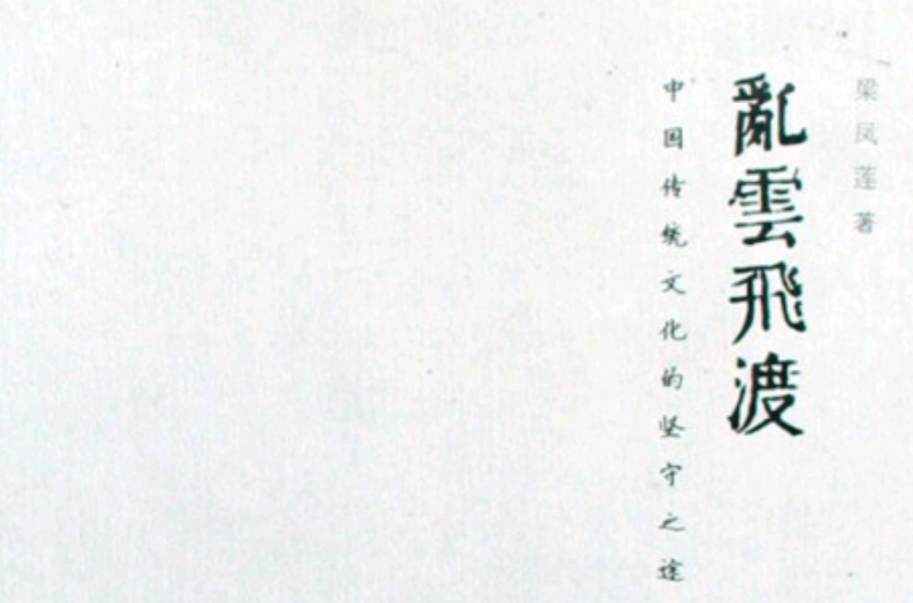 梁凤莲 著
亂雲飛渡
中国传统文化的坚守之途